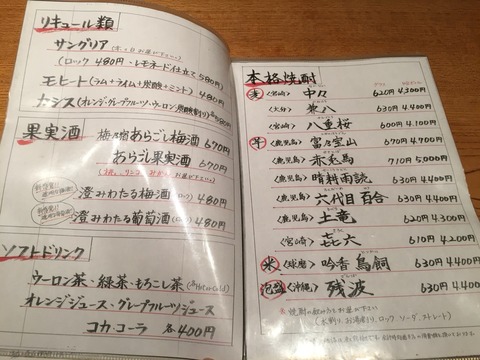 リキュール類
サングリア(赤・白 お選び下さい)
(ロック 480円・レモネード仕立て 580円)
モヒート(ラム+ライム+炭酸+ミント) 480円
カシス(オレンジ・グレープフルーツ・ウーロン・炭酸割り)
果実酒
梅乃宿あらごし梅酒 670円
あらごし果実酒 670円
(桃、りんご、みかん お選び下さい)
澄みわたる梅酒(ロック) 480円
澄みわたる葡萄酒(ロック) 480円
ソフトドリンク
ウーロン茶・緑茶・もろこし茶(各Hot or Cold)
オレンジジュース・グレープフルーツジュース
コカ・コーラ 各400円
本格焼酎
麦〈宮崎〉中々 620円 4,300円
〈大分〉兼八 630円 4,400円
〈宮崎〉八重桜 600円 4,100円
芋〈鹿児島〉富乃宝山 670円 4,700円
〈鹿児島〉赤兎馬 710円 5,000円
〈鹿児島〉晴耕雨読 630円 4,400円
〈鹿児島〉六代目百合 630円 4,400円
〈鹿児島〉土竜 620円 4,300円
〈宮崎〉㐂六 610円 4,200円
米〈球磨〉吟香鳥飼 630円 4,400円
泡盛〈沖縄〉残波 630円 4,400円
焼酎の飲み方をお選び下さい
(水割り、お湯割り、ロック、ソーダ、ストレート)